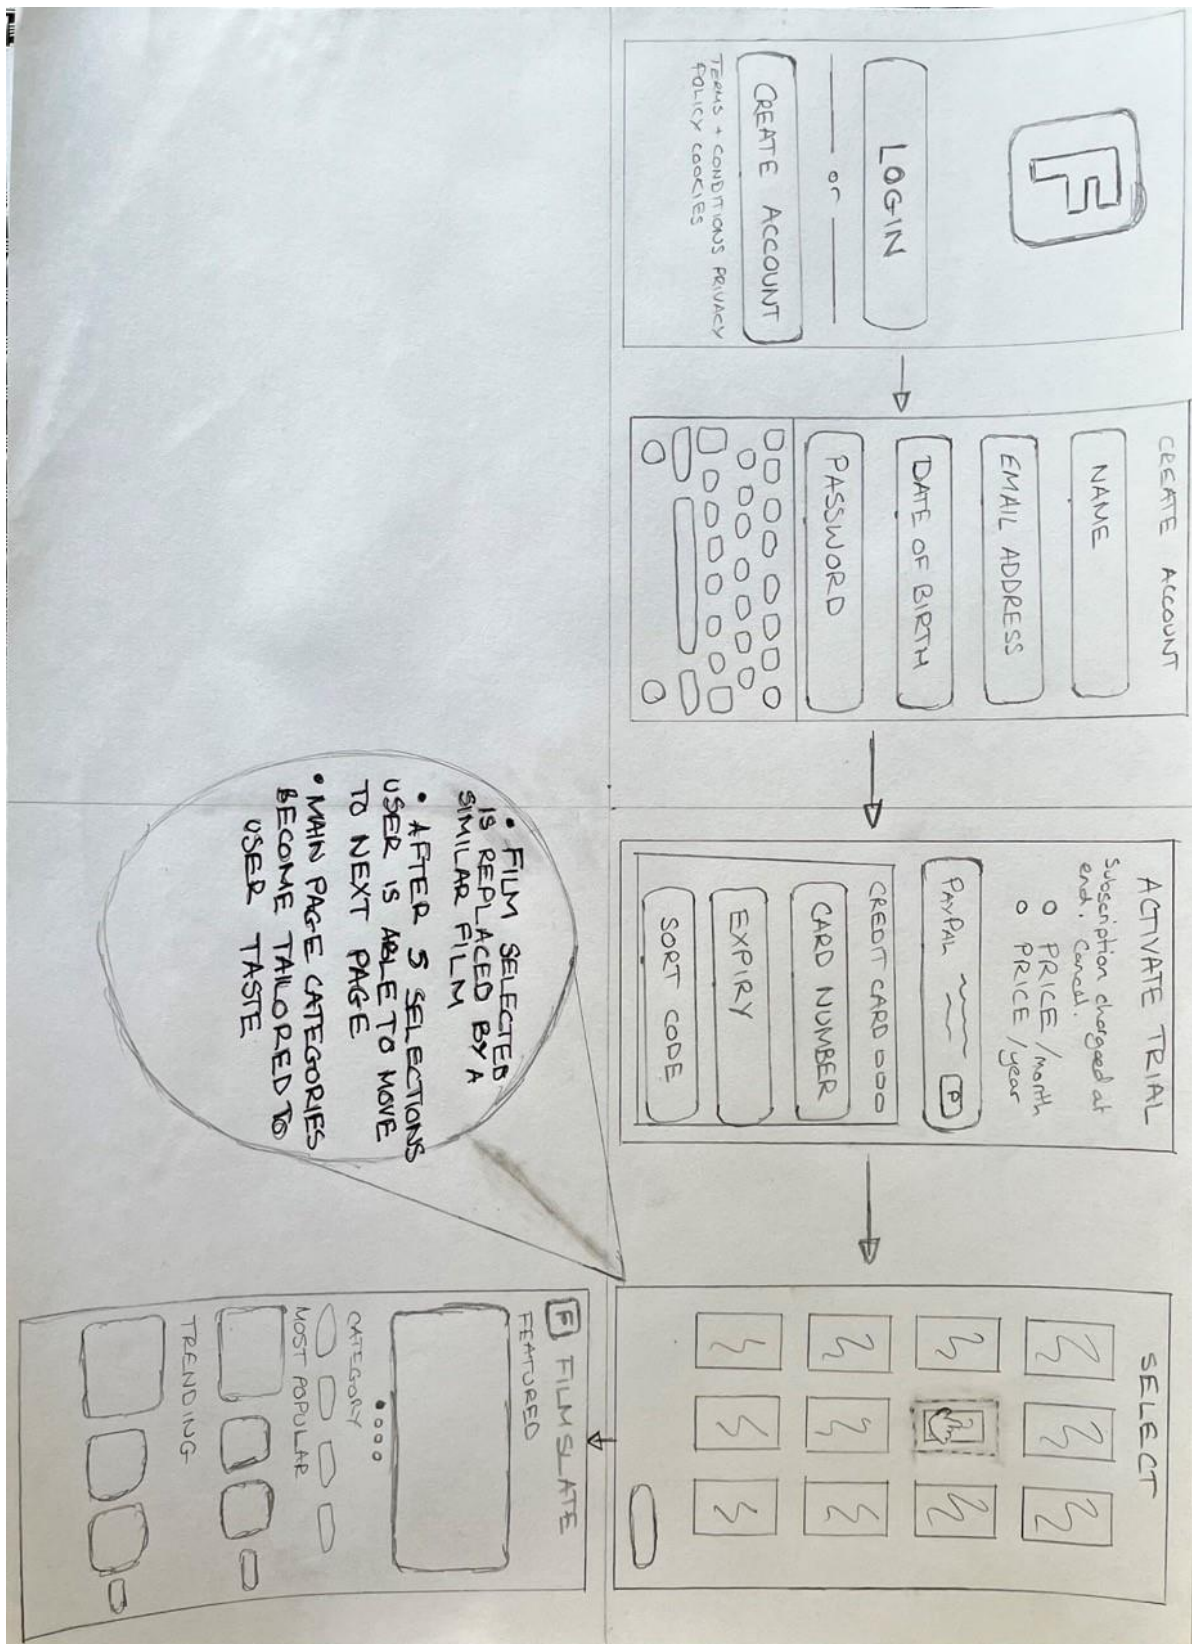 F
LOGIN
or
CREATE ACCOUNT
TERMS + CONDITIONS PRIVACY
POLICY COOKIES
CREATE ACCOUNT
NAME
EMAIL ADDRESS
DATE OF BIRTH
PASSWORD
ACTIVATE TRIAL
Subscription charged at
end. Cancel.
PRICE /month
PRICE /year
PAYPAL
P
CREDIT CARD
CARD NUMBER
EXPIRY
SORT CODE
SELECT
• FILM SELECTED
IS REPLACED BY A
SIMILAR FILM
• AFTER 5 SELECTIONS
USER IS ABLE TO MOVE
TO NEXT PAGE
• MAIN PAGE CATEGORIES
BECOME TAILORED TO
USER TASTE
F FILM SLATE
FEATURED
CATEGORY
MOST POPULAR
TRENDING